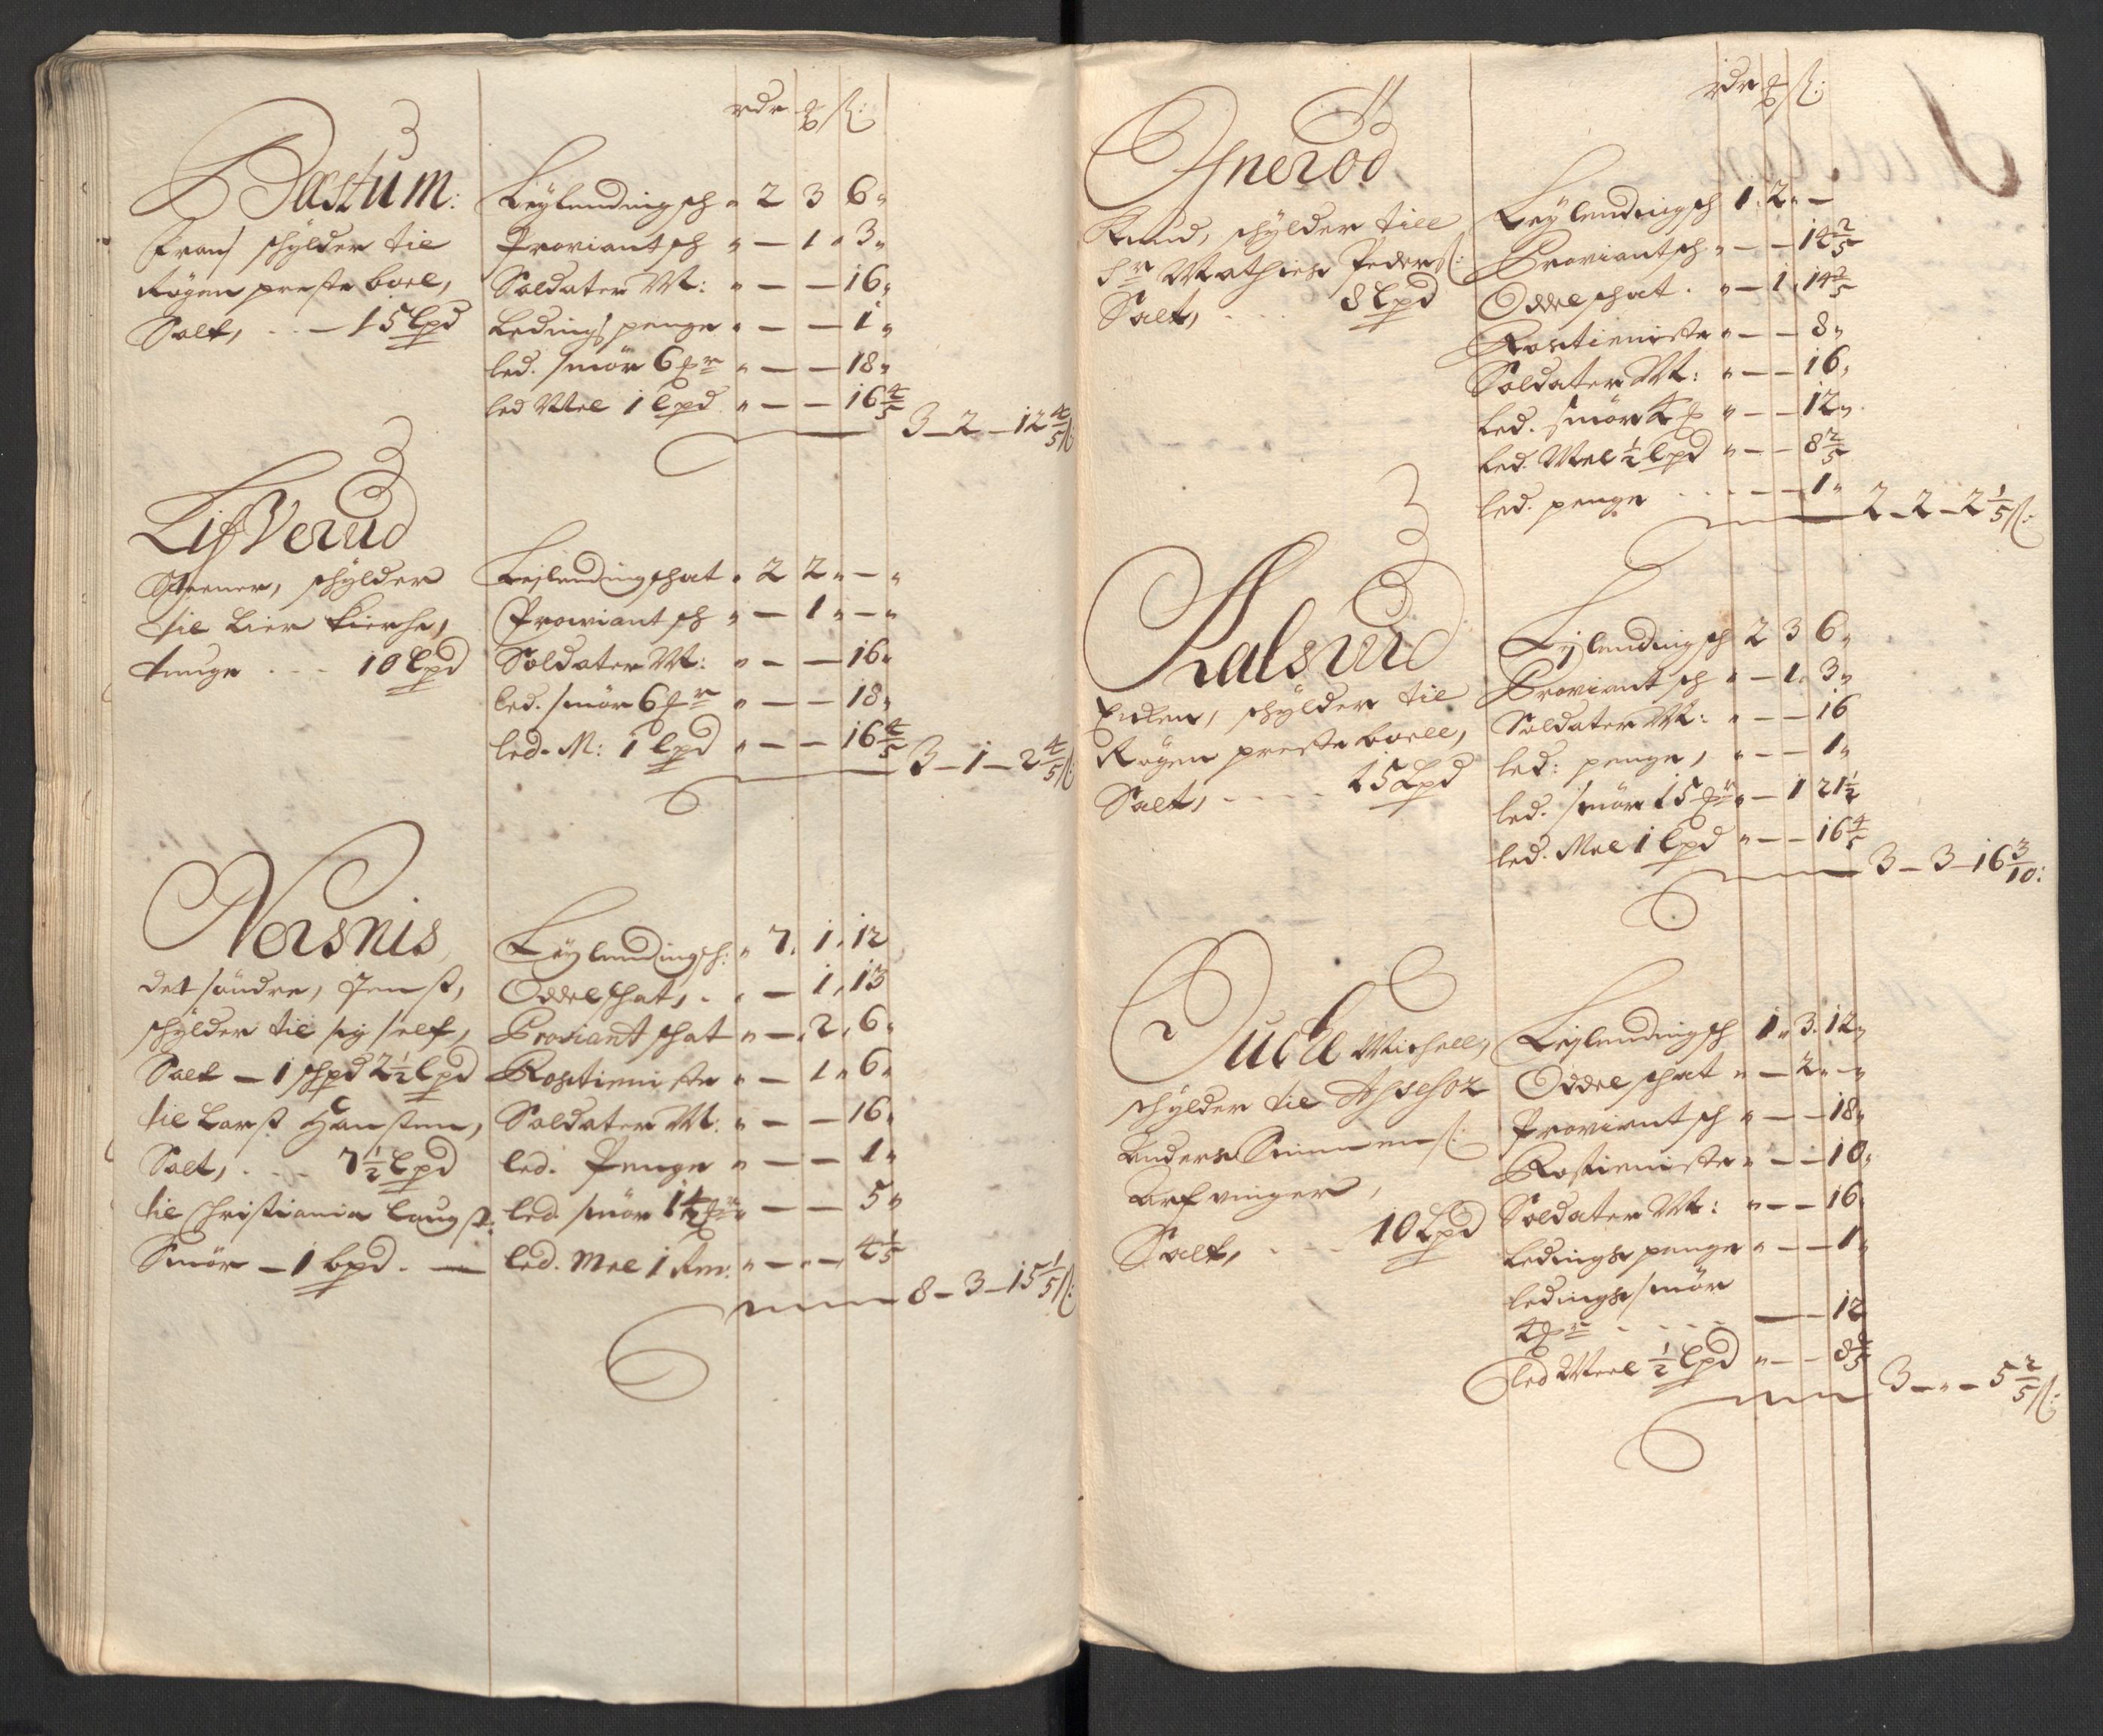 rdr ß:
Bastum:
Frans schÿlder til
Røgen preste boel,
Salt, - 15 Lpd
Leÿlendings sch " 2 3 6 "
Proviant sch " - 1 " 3 "
Soldater M: " - - 16 "
Ledings penge " - - 1 "
led. smör 6 " - - 18 "
led Mel 1 Lpd " - - 16 4/5
3 - 2 - 12 4/5 ß:
LifVerud
Steener, schÿlder
til Lier Kierche,
tunge - - - 10 Lpd
Leÿlendings schat " 2 2 " - "
Proviant sch " - 1 " - "
Soldater M: " - - 16 "
led. smör 6 " - - 18 "
led. M: 1 Lpd " - - 16 4/5
3 - 1 - 2 4/5 ß:
Nersnis
det söndre, Jens,
schÿlder til sig self,
Salt - 1 schpd 2 1/2 Lpd
til Lars Hansen,
Salt, - - 7 1/2 Lpd
til Christiania laugst:
Smör - 1 bpd. -
Leÿlendings sch: " 7. 1. 12
Oddel schat, . " - 1. 13
Proviant schat " - 2. 6 "
Rostieniste " - 1 " 6 "
Soldater M. " - - 16 "
led. Penge " - - 1 "
led. smör 1 1/2 " - - 5 "
led. Mel 1 Rm: " - - 4 1/5
8 - 3 - 15 1/5 ß:
rdr ß:
Gnerød
Knud, schÿlder till
Hr Mathies Peders:
Salt, - - - 8 Lpd
Leÿlendings sch 1. 2 " -
Proviant sch " - - 14 2/5
Oddel schat . " - 1. 14 2/5
Rostieniste " - - 8 "
Soldater M: " - - 16 "
led. smör 4 " - - 12 "
led. Mel 1/2 Lpd " - - 8 2/5
led. penge - - - - 1 "
2 - 2 - 2 1/5 ß:
Kalsrud
schÿlder til
Røgen preste boell,
Salt, - - - - 15 Lpd
Leÿlendings sch 2 3 6 "
Proviant sch " - 1. 3 "
Soldater M: " - - 16
led: penge, " - - 1 "
led. smör 15 " - 1 21 1/2
led. Mel 1 Lpd " - - 16 4/5
3 - 3 - 16 3/10:
Michell,
schÿlder til Assessor
Anders Simensß:
arfvinger,
Salt, - - - 10 Lpd
Leÿlendings sch 1 " 3. 12 "
Oddel schat " - 2 " - "
Proviant sch " - - 18 "
Rostieniste " - - 10 "
Soldater M: " - - 16 "
Ledings penge " - - 1 "
ledings smör
4 - - - - - - 12
led Meel 1/2 Lpd " - - 8 2/5
3 - " - 5 2/5 ß: